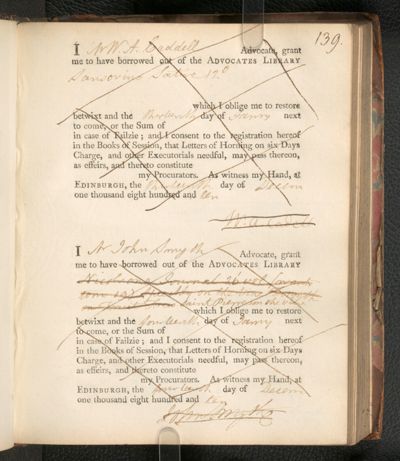 139.
I Mr W. A. Caddell Advocate, grant
me to have borrowed out of the ADVOCATES LIBRARY
Sansovino
which I oblige me to restore
betwixt and the day of Janry next
to come, or the Sum of
in case of Failzie; and I consent to the registration hereof
in the Books of Session, that Letters of Horning on six Days
Charge, and other Executorials needful, may pass thereon,
as effeirs, and thereto constitute
my Procurators. As witness my Hand, at
EDINBURGH, the day of Decem
one thousand eight hundred and ten
I Mr John Smyth Advocate, grant
me to have borrowed out of the ADVOCATES LIBRARY
which I oblige me to restore
betwixt and the day of Janry next
to come, or the Sum of
in case of Failzie; and I consent to the registration hereof
in the Books of Session, that Letters of Horning on six Days
Charge, and other Executorials needful, may pass thereon,
as effeirs, and thereto constitute
my Procurators. As witness my Hand, at
EDINBURGH, the day of Decem
one thousand eight hundred and ten